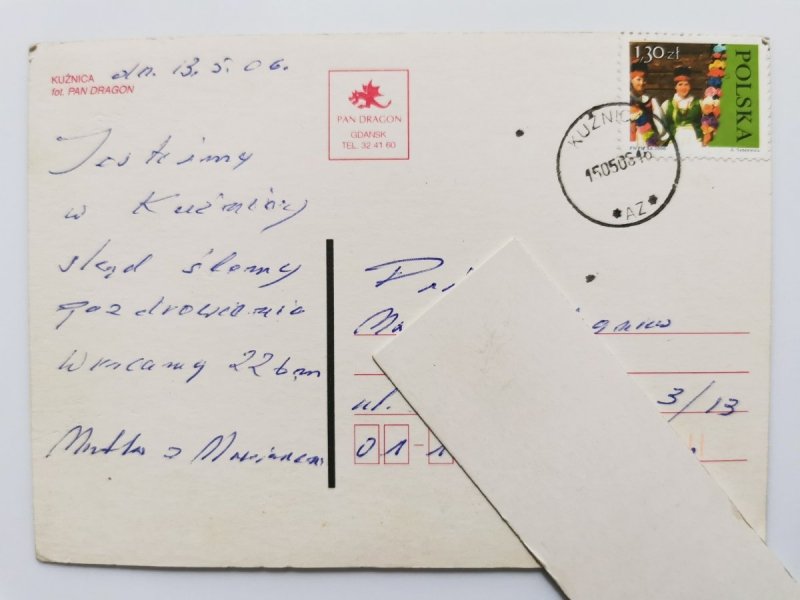 KUŹNICA dn. 13.5.06.
fot. PAN DRAGON
PAN DRAGON
GDAŃSK
TEL. 32 41 60
1,30 zł
POLSKA
KUŹNIC
15050616
* AZ *
Jesteśmy
w Kuźnicy
skąd ślemy
pozdrowienia
Wracamy 22 bm
z Marianem
ul. 3/13
01-1